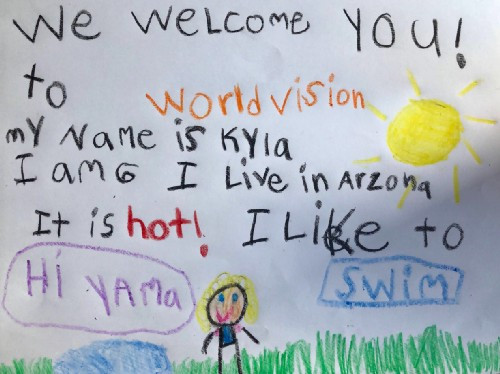 We WeLcome YOU!
to
worldvision
mY Name is KYla
I am 6 I Live in Arzona
It is hot! I LiKe to
Hi YAMa
SWim